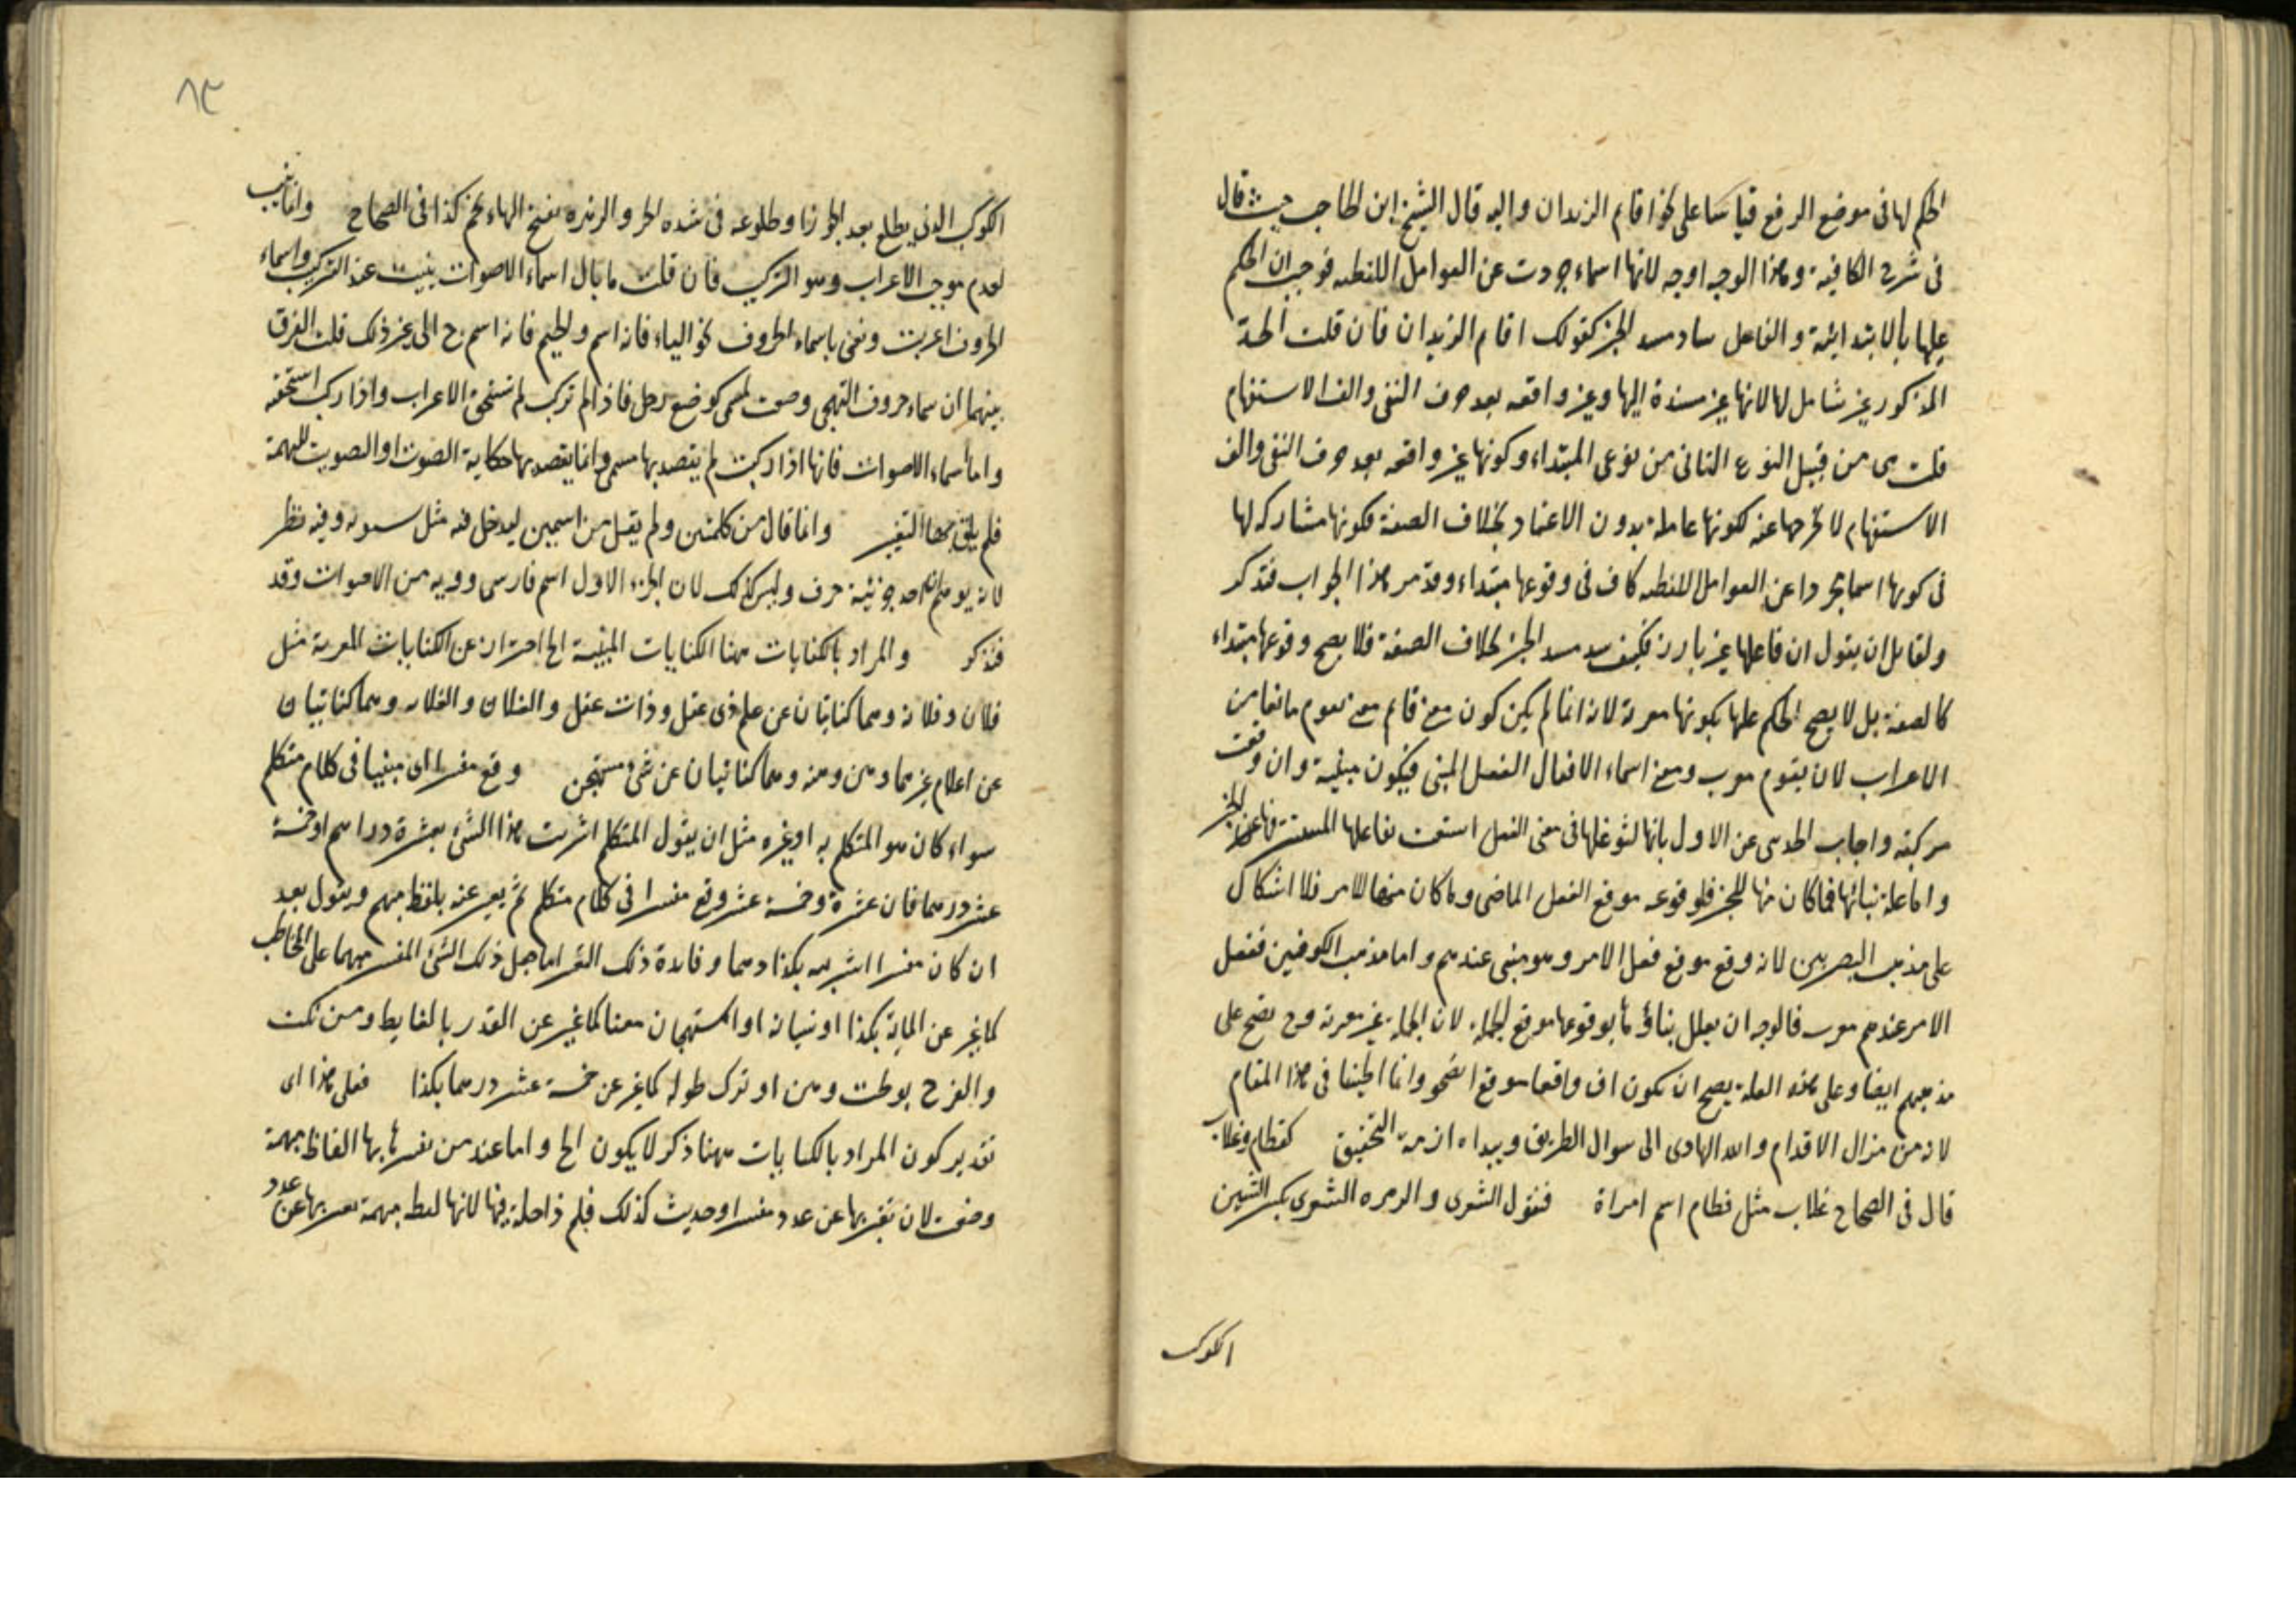 الحكم لها فى موضع الرفع قياسا على نحو اقام الزيدان واليه قال الشيخ ابن الحاجب حيث قال
فى شرح الكافية وهذا الوجه اوجه لانها اسماء جردت عن العوامل اللفظيه فوجب ان الحكم
عليها بالابتدائية والفاعل ساد مسد الخبر كقولك اقام الزيدان فان قلت الحد
المذكور غير شامل لها لانها غير مسندة اليها وغير واقعه بعد حرف النفى والف الاستفهام
قلت هى من قبيل النوع الثانى من نوعى المبتداء وكونها غير واقعه بعد حرف النفى والف
الاستفهام لا تخرجها عنه لكونها عاملة بدون الاعتماد بخلاف الصفة فكونها مشاركه لها
فى كونها اسما مجردا عن العوامل اللفظيه كاف فى وقوعها مبتداء وقد مر هذا الجواب فتذكر
ولقائل ان يقول ان فاعلها غير بارز فكيف سد مسد الخبر بخلاف الصفة فلا يصح وقوعها مبتداء
كالصفة بل لا يصح الحكم عليها بكونها معربة لانه انما لم يكن كون مع قام مع يقوم مانعا من
الاعراب لان يقوم معرب ومع اسماء الافعال الفعل المبنى فيكون مبنية وان وقعت
مركبة واجاب الحدى عن الاول بانها لتوغلها فى معنى الفعل استغنت بفاعلها المستتر فيها عن الخبر
واما علة بنائها فما كان منها للخبر فلوقوعه موقع الفعل الماضى وما كان منها للامر فلا اشكال
على مذهب البصريين لانه وقع موقع فعل الامر وهو مبنى عندهم واما مذهب الكوفيين ففعل
الامر عندهم معرب فالوجه ان يعلل بناؤها بوقوعها موقع الجملة لان الجملة غير معربة وح يصح على
مذهبهم ايضا وعلى هذه العلة يصح ان يكون اف واقعا موقع اتضجر وانما اطنبنا فى هذا المقام
لانه من مزال الاقدام والله الهادى الى سوال الطريق وبيده ازمة التحقيق كقطام وغلاب
قال فى الصحاح غلاب مثل قطام اسم امراة فنقول الشعرى والزهره الشعرى بكسر الشين
الكوكب
٨٣
الكوكب الذى يطلع بعد الجوزا وطلوعه فى شده الحر والزهره بفتح الهاء نجم كذا فى الصحاح وانما بنيت
لعدم موجب الاعراب وهو التركيب فان قلت ما بال اسماء الاصوات بنيت عند التركيب واسماء
الحروف اعربت ونعنى باسماء الحروف نحو الياء فانه اسم والجيم فانه اسم ج الى غير ذلك قلت الفرق
بينهما ان اسماء حروف التهجى وضعت لمعنى كوضع رجل فاذا لم تركب لم تستحق الاعراب واذا ركبت استحقته
واما اسماء الاصوات فانها اذا ركبت لم يقصد بها مسمى وانما يقصد بها حكاية الصوت او الصويت للبهيمة
فلم يلق بها التغير وانما قال من كلمتين ولم يقل من اسمين ليدخل فيه مثل سيبويه وفيه نظر
لانه يوهم ان احد جزئيه حرف وليس كذلك لان الجزء الاول اسم فارسى وويه من الاصوات وقد
فتذكر والمراد بالكنايات ههنا الكنايات المبنية الخ احتراز عن الكنايات المعربة مثل
فلان وفلانة وهما كنايتان عن علم ذى عقل وذات عقل والفلان والفلانه وهما كنايتان
عن اعلام غيرهما وهن وهنه وهما كنايتان عن شئ مستهجن وقع مفسرا اى مبينا فى كلام متكلم
سواء كان هو المتكلم به او غيره مثل ان يقول المتكلم اشريت هذا الشئ بعشرة دراهم او خمسة
عشر درهما فان عشرة وخمسة عشر وقع مفسرا فى كلام متكلم ثم يعبر عنه بلفظ مبهم ويقول بعد
ان كان مفسرا اشتريته بكذا درهما وفائدة ذلك التعبير اما جعل ذلك الشئ المفسر مبهما على المخاطب
كما يعبر عن المائة بكذا او نسيانه او استهجان معناه كما يعبر عن القذر بالغايط ومن نكت
والفرج بوطئت وهن او ترك طوله كما يعبر عن خمسة عشر درهما بكذا فعلى هذا اى
تقدير كون المراد بالكنايات ههنا ذكر لا يكون الخ واما عند من يفسرها بها الفاظ مبهمة
وضعت لان يعبر بها عن عدد مفسرا وحديث كذلك فلم داخلة فيها لانها لفظ مبهمة يعبر بها عن عدد